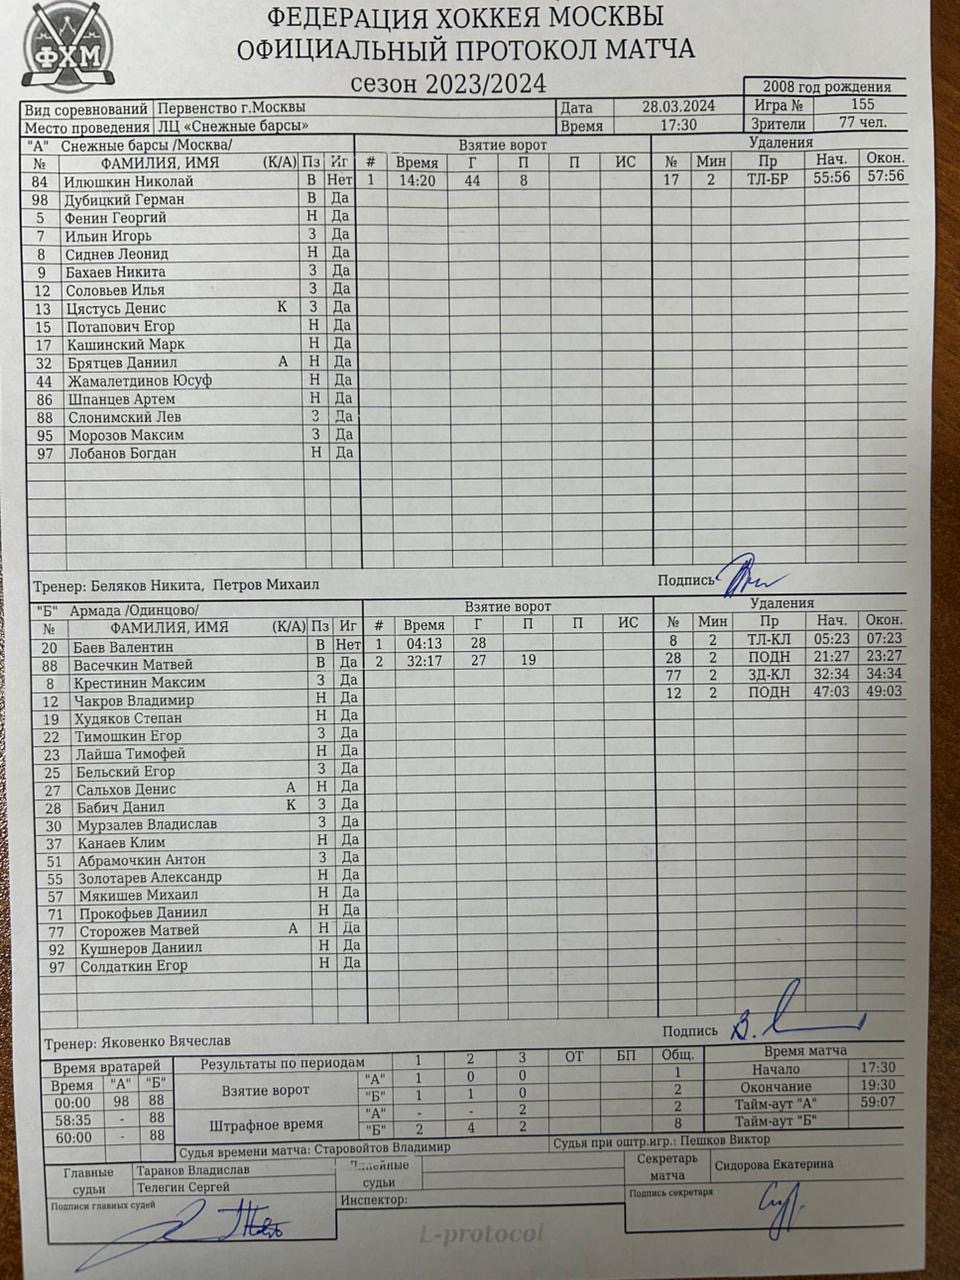 ФХМ
ФЕДЕРАЦИЯ ХОККЕЯ МОСКВЫ
ОФИЦИАЛЬНЫЙ ПРОТОКОЛ МАТЧА
сезон 2023/2024
2008 год рождения
Вид соревнований Первенство г.Москвы Дата 28.03.2024 Игра № 155
Место проведения ЛЦ «Снежные барсы» Время 17:30 Зрители 77 чел.
"А" Снежные барсы /Москва/ Взятие ворот Удаления
№ ФАМИЛИЯ, ИМЯ (К/А) Пз Иг # Время Г П П ИС № Мин Пр Нач. Окон.
84 Илюшкин Николай В Нет 1 14:20 44 8 17 2 ТЛ-БР 55:56 57:56
98 Дубицкий Герман В Да
5 Фенин Георгий Н Да
7 Ильин Игорь З Да
8 Сиднев Леонид Н Да
9 Бахаев Никита З Да
12 Соловьев Илья З Да
13 Цястусь Денис К З Да
15 Потапович Егор Н Да
17 Кашинский Марк Н Да
32 Брятцев Даниил А Н Да
44 Жамалетдинов Юсуф Н Да
86 Шпанцев Артем Н Да
88 Слонимский Лев З Да
95 Морозов Максим З Да
97 Лобанов Богдан Н Да
Тренер: Беляков Никита, Петров Михаил Подпись
"Б" Армада /Одинцово/ Взятие ворот Удаления
№ ФАМИЛИЯ, ИМЯ (К/А) Пз Иг # Время Г П П ИС № Мин Пр Нач. Окон.
20 Баев Валентин В Нет 1 04:13 28 8 2 ТЛ-КЛ 05:23 07:23
88 Васечкин Матвей В Да 2 32:17 27 19 28 2 ПОДН 21:27 23:27
8 Крестинин Максим З Да 77 2 ЗД-КЛ 32:34 34:34
12 Чакров Владимир Н Да 12 2 ПОДН 47:03 49:03
19 Худяков Степан Н Да
22 Тимошкин Егор З Да
23 Лайша Тимофей Н Да
25 Бельский Егор З Да
27 Сальхов Денис А Н Да
28 Бабич Данил К З Да
30 Мурзалев Владислав З Да
37 Канаев Клим Н Да
51 Абрамочкин Антон З Да
55 Золотарев Александр Н Да
57 Мякишев Михаил Н Да
71 Прокофьев Даниил Н Да
77 Сторожев Матвей А Н Да
92 Кушнеров Даниил Н Да
97 Солдаткин Егор Н Да
Тренер: Яковенко Вячеслав Подпись
Время вратарей Результаты по периодам 1 2 3 ОТ БП Общ. Время матча
Время "А" "Б" Взятие ворот "А" 1 0 0 1 Начало 17:30
00:00 98 88 "Б" 1 1 0 2 Окончание 19:30
58:35 - 88 Штрафное время "А" - - 2 2 Тайм-аут "А" 59:07
60:00 - 88 "Б" 2 4 2 8 Тайм-аут "Б"
Судья времени матча: Старовойтов Владимир Судья при оштр.игр.: Пешков Виктор
Главные судьи Таранов Владислав судьи Секретарь матча Сидорова Екатерина
Телегин Сергей
Подписи главных судей Инспектор: Подпись секретаря
L-protocol